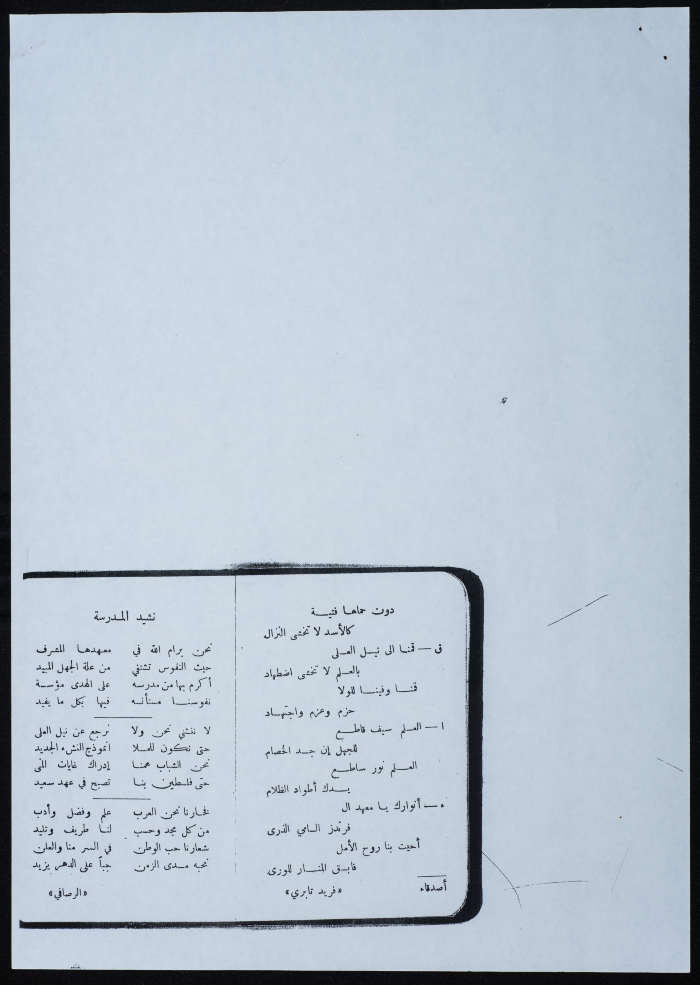 دون حماها فتيـــة
كالأسد لا تخشى النزال
ق — قمنـا الى نيــل العــلى
بالعــلم لا تخشى اضطهاد
قمنــا وفينــا للولا
حزم وعزم واجتهــاد
ا — العــلم سيف قاطــع
للجهل إن جــد الخصام
العــلم نور ساطــع
يـــدك أطواد الظلام
ء — أنوارك يــا معهد ال
فرندز الســامي الذرى
أحيت بنا روح الأمل
فابــق المنــار للورى
أصدقاء
«فريد تابري»
نشيد المـدرسة
نحن برام الله في معهدهــا المشرف
حيث النفوس تشتفي من علة الجهل المبيد
أكرم بها من مدرسه على الهدى مؤسسة
نفوسنــا مستأنــه فيها بكل ما يفيد
لا ننثني نحن ولا نرجع عن نيل العلى
حتى نكون للمــلا انموذج النشء الجديد
نحن الشباب همنــا إدراك غايات المنى
حتى فلسطين بنــا تصبح في عهد سعيد
فخارنا نحن العرب علم وفضل وأدب
من كل مجد وحسب لنــا طريف وتليد
شعارنا حب الوطن في السر منا والعلن
نحبه مــدى الزمن حباً على الدهر يزيد
«الرصافي»